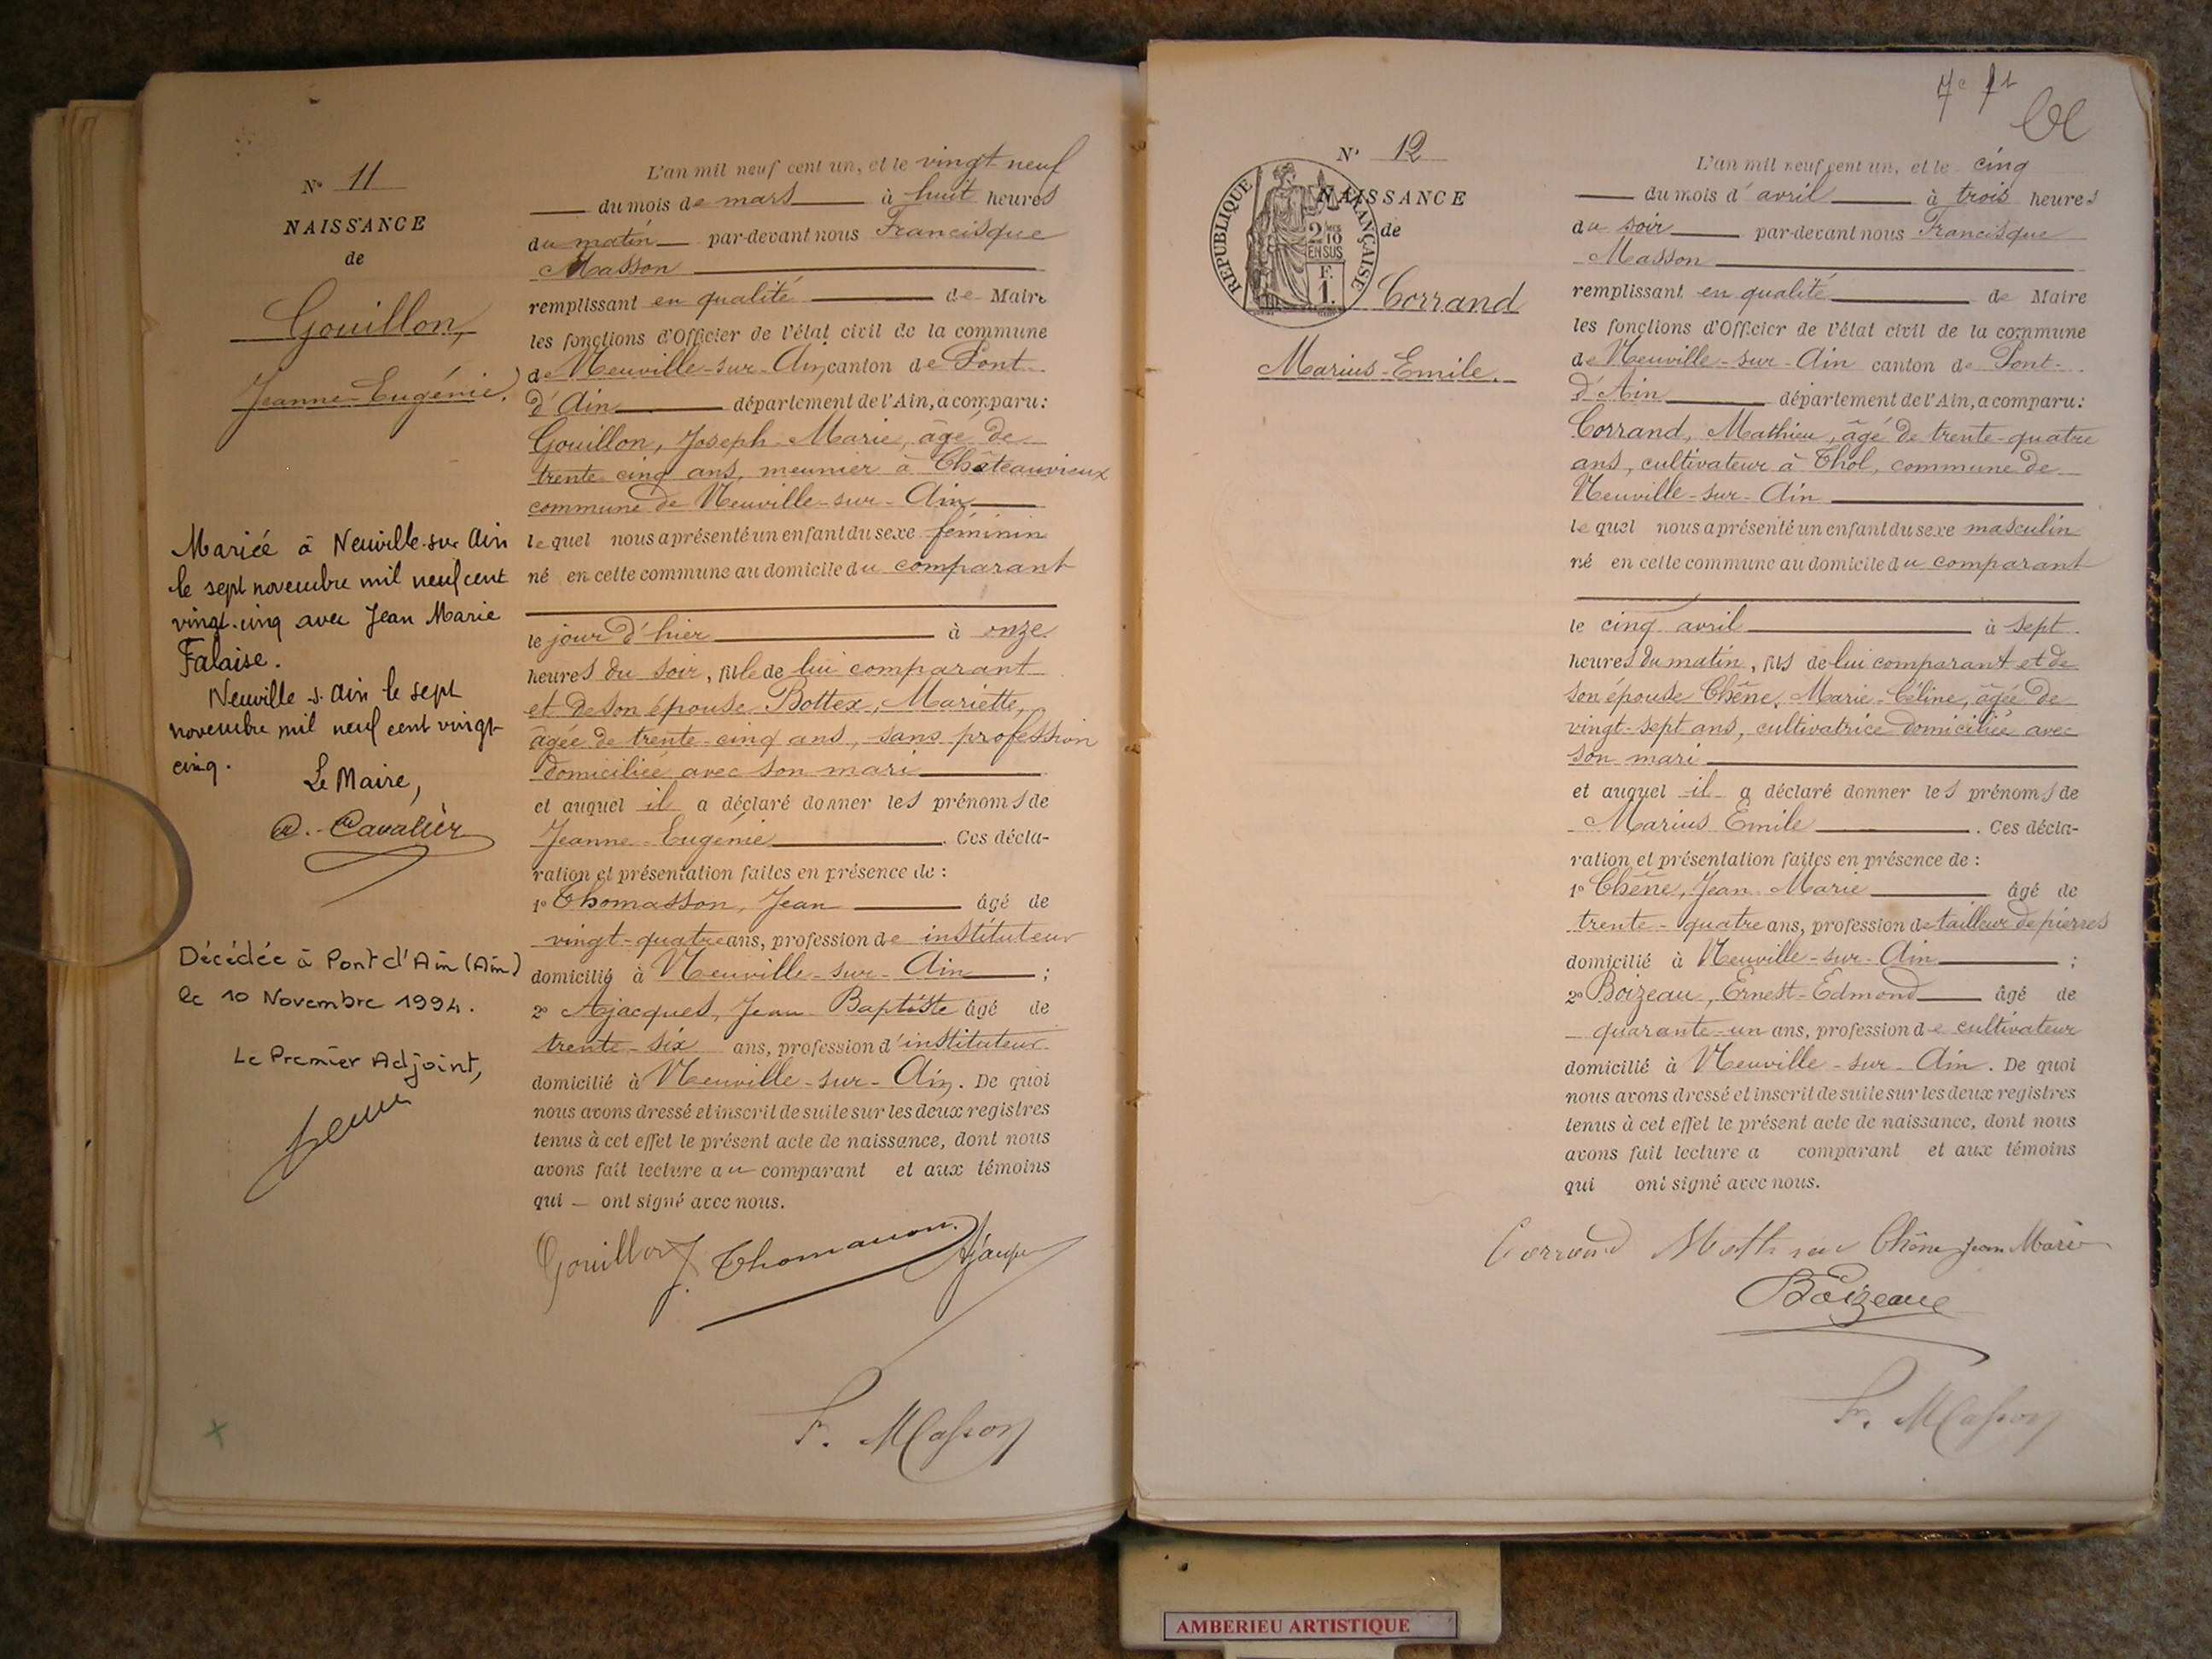 N° 11
NAISSANCE
de
Gouillon,
Jeanne-Eugénie.
Mariée à Neuville-sur Ain
le sept novembre mil neuf cent
vingt-cinq avec Jean Marie
Falaise.
Neuville s. Ain le sept
novembre mil neuf cent vingt-
cinq.
Le Maire,
Cavalier
Décédée à Pont d'Ain (Ain)
le 10 Novembre 1994.
Le Premier Adjoint,
L'an mil neuf cent un, et le vingt neuf
du mois de mars à huit heures
du matin par-devant nous Francisque
Masson
remplissant en qualité de Maire
les fonctions d'Officier de l'état civil de la commune
de Neuville-sur-Ain, canton de Pont-
d'Ain département de l'Ain, a comparu:
Gouillon, Joseph-Marie, âgé de
trente cinq ans, meunier à Châteauvieux
commune de Neuville-sur-Ain
lequel nous a présenté un enfant du sexe féminin
né en cette commune au domicile du comparant
le jour d'hier à onze
heures du soir, fille de lui comparant
et de son épouse Bottex, Mariette,
âgée de trente cinq ans, sans profession
domiciliée avec son mari
et auquel il a déclaré donner les prénoms de
Jeanne-Eugénie. Ces décla-
ration et présentation faites en présence de :
1° Thomasson, Jean âgé de
vingt-quatre ans, profession de instituteur
domicilié à Neuville-sur-Ain ;
2° Ajacques, Jean Baptiste âgé de
trente-six ans, profession d'instituteur
domicilié à Neuville-sur-Ain. De quoi
nous avons dressé et inscrit de suite sur les deux registres
tenus à cet effet le présent acte de naissance, dont nous
avons fait lecture au comparant et aux témoins
qui — ont signé avec nous.
Gouillon J. Thomasson Ajacques
F. Masson
7e ft
N° 12
NAISSANCE
de
RÉPUBLIQUE FRANÇAISE
2/10
EN SUS
F.
1.
Corrand
Marius-Emile.
L'an mil neuf cent un, et le cinq
du mois d'avril à trois heures
du soir par-devant nous Francisque
Masson
remplissant en qualité de Maire
les fonctions d'Officier de l'état civil de la commune
de Neuville-sur-Ain canton de Pont-
d'Ain département de l'Ain, a comparu:
Corrand, Mathieu, âgé de trente-quatre
ans, cultivateur à Thol, commune de
Neuville-sur-Ain
lequel nous a présenté un enfant du sexe masculin
né en cette commune au domicile du comparant
le cinq avril à sept
heures du matin, fils de lui comparant et de
son épouse Chêne, Marie-Céline, âgée de
vingt-sept ans, cultivatrice domiciliée avec
son mari
et auquel il a déclaré donner les prénoms de
Marius Emile. Ces décla-
ration et présentation faites en présence de :
1° Chêne, Jean Marie âgé de
trente-quatre ans, profession de tailleur de pierres
domicilié à Neuville-sur-Ain ;
2° Boizeau, Ernest-Edmond âgé de
quarante-un ans, profession de cultivateur
domicilié à Neuville-sur-Ain. De quoi
nous avons dressé et inscrit de suite sur les deux registres
tenus à cet effet le présent acte de naissance, dont nous
avons fait lecture a comparant et aux témoins
qui ont signé avec nous.
Corrand Mathieu Chêne Jean Marie
Boizeau
F. Masson
AMBERIEU ARTISTIQUE